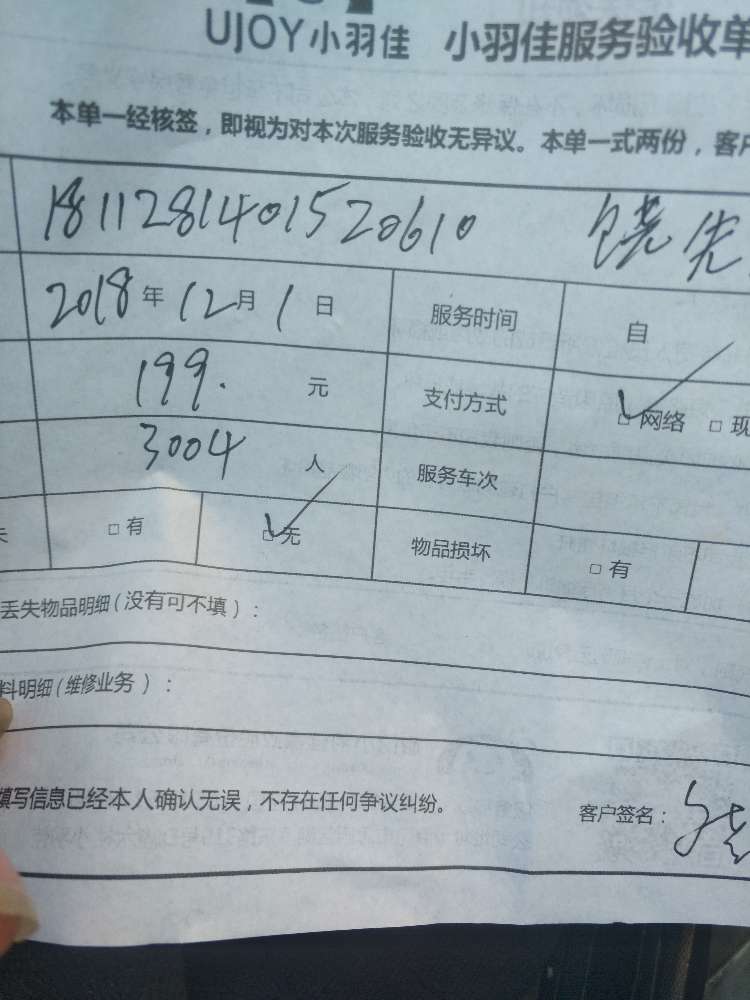 UJOY小羽佳 小羽佳服务验收单
本单一经核签，即视为对本次服务验收无异议。本单一式两份，客户
1811281401520610 饶先
2018年12月1日 服务时间 自
199. 元 支付方式 □网络 □现
3004 人 服务车次
失 □有 □无 物品损坏 □有
丢失物品明细(没有可不填)：
料明细(维修业务)：
填写信息已经本人确认无误，不存在任何争议纠纷。 客户签名：